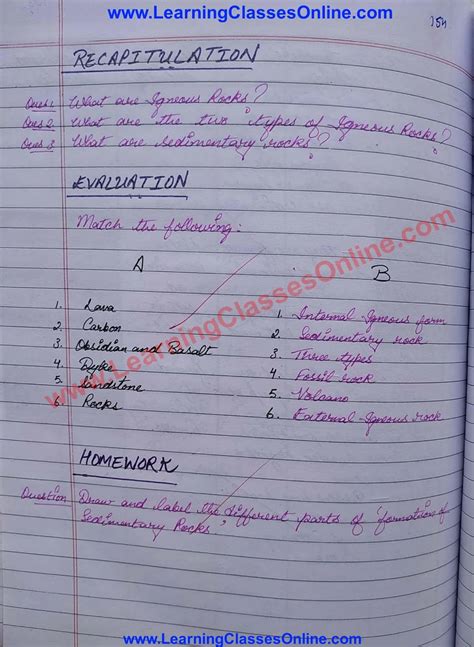 www.LearningClassesOnline.com
154
RECAPITULATION
Ques 1. What are Igneous Rocks?
Ques 2. What are the two types of Igneous Rocks?
Ques 3. What are sedimentary rocks?
EVALUATION
Match the following:
A B
1. Lava 1. Internal-Igneous form
2. Carbon 2. Sedimentary rock
3. Obsidian and Basalt 3. Three types
4. Dyke 4. Fossil rock
5. Sandstone 5. Volcano
6. Rocks 6. External-Igneous rock
www.LearningClassesOnline.com
HOMEWORK
Question Draw and label the different parts of 'formation of
Sedimentary Rocks.'
www.LearningClassesOnline.com